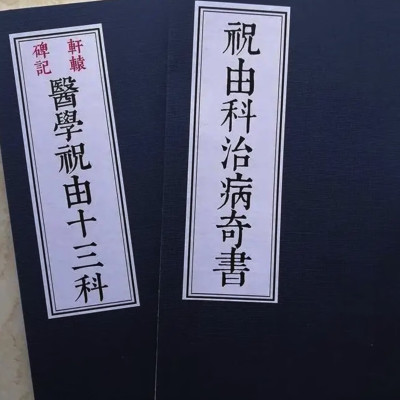 祝由科治病奇書
軒轅
碑記
醫學祝由十三科